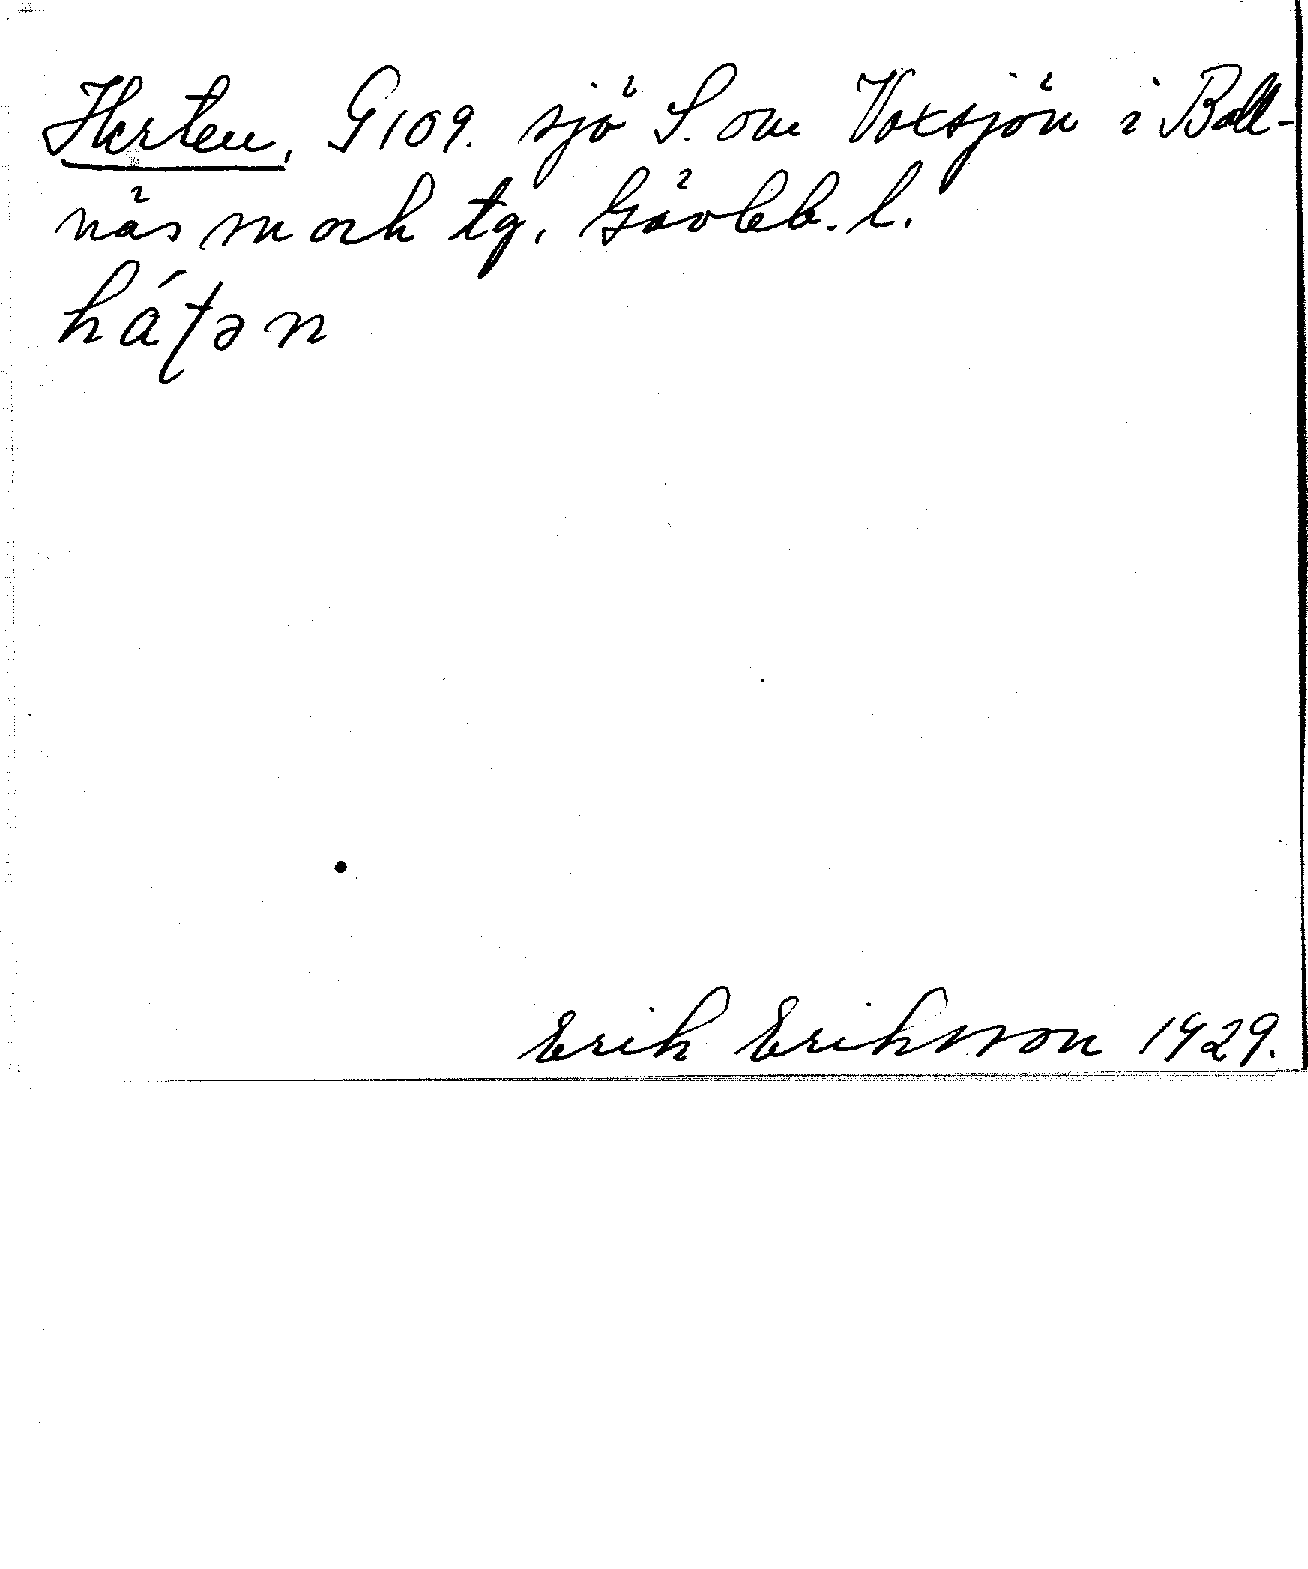 Harten, G 109. sjö S. om Voxsjön i Boll-
näs sn och tg, Gävleb. l.
háʈən
Erik Eriksson 1929.